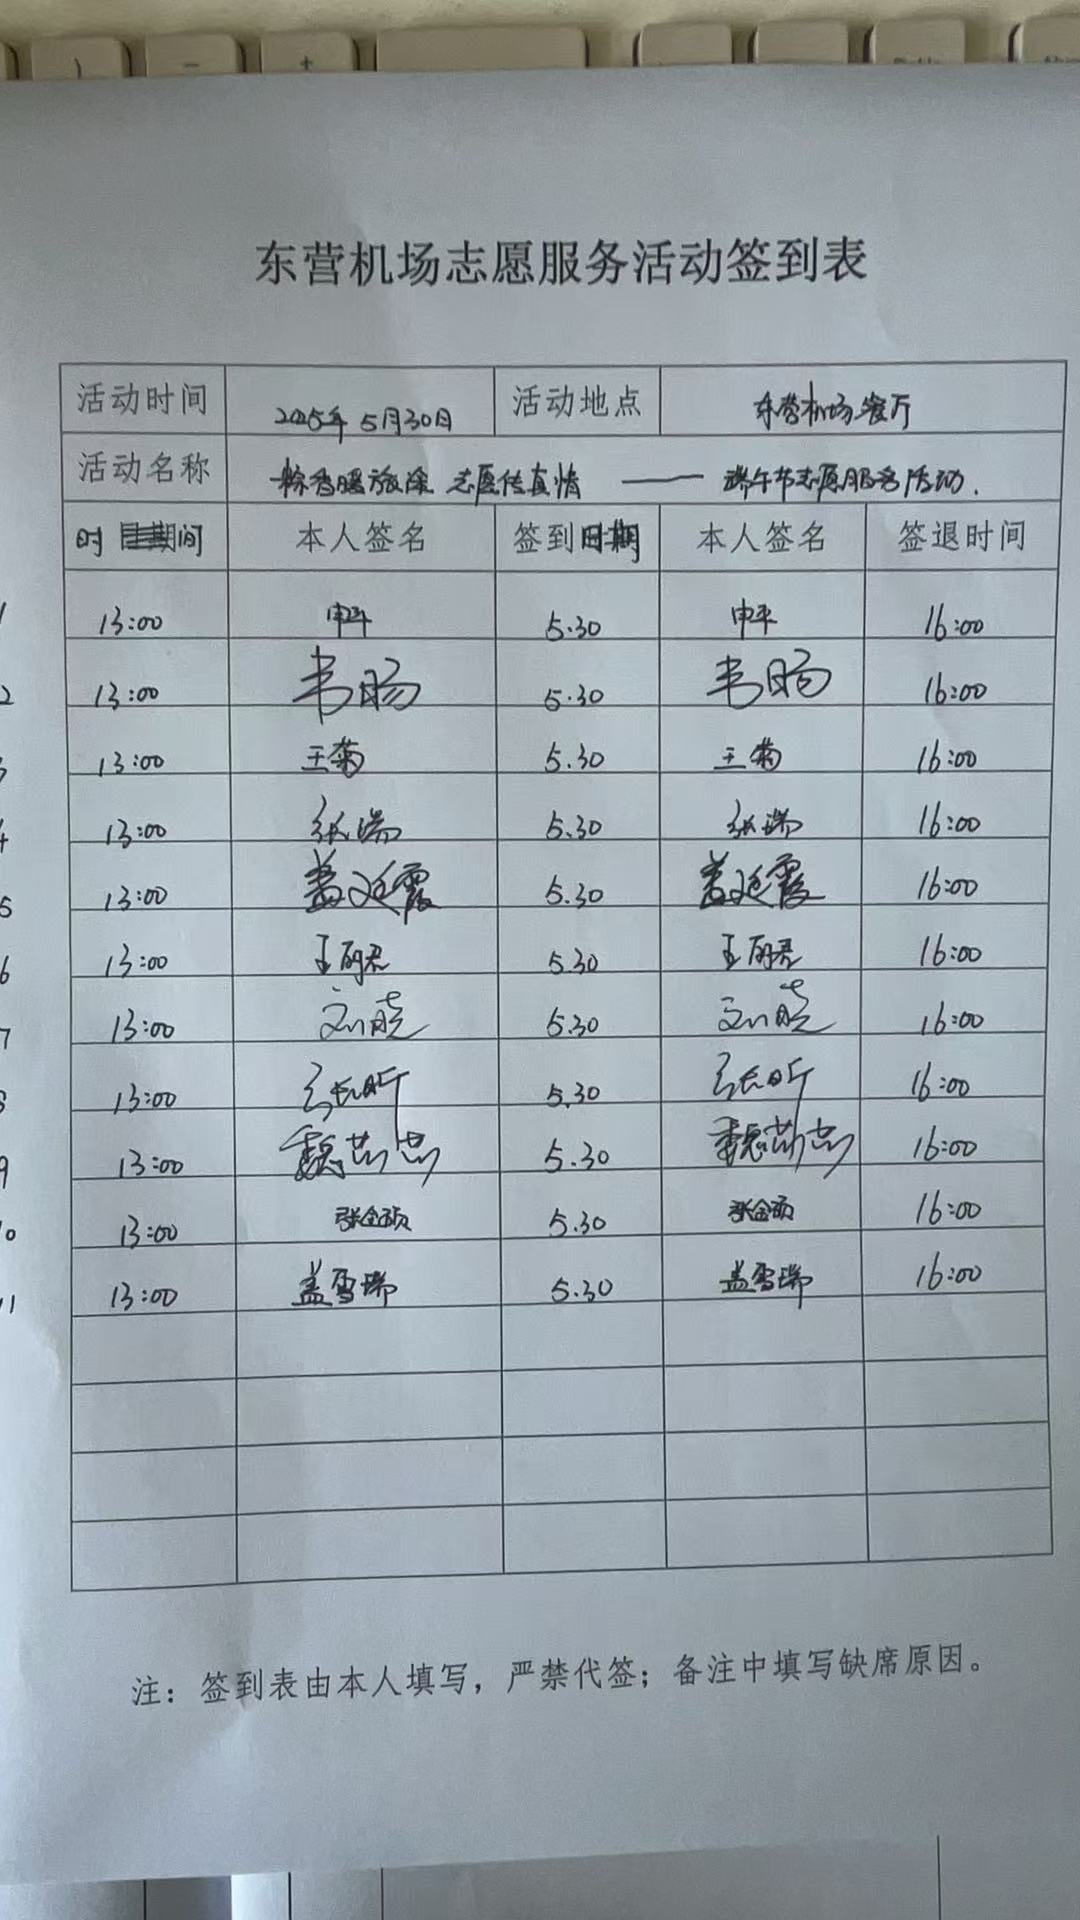 东营机场志愿服务活动签到表
活动时间 2025年5月30日 活动地点 东营机场餐厅
活动名称 粽香暖旅途 志愿传真情 —— 端午节志愿服务活动.
时间 本人签名 签到日期 本人签名 签退时间
1 13:00 申平 5.30 申平 16:00
2 13:00 韦旸 5.30 韦旸 16:00
3 13:00 王菊 5.30 王菊 16:00
4 13:00 张瑞 5.30 张瑞 16:00
5 13:00 盖廷霞 5.30 盖廷霞 16:00
6 13:00 王丽君 5.30 王丽君 16:00
7 13:00 刘晓 5.30 刘晓 16:00
8 13:00 张昕 5.30 张昕 16:00
9 13:00 魏 5.30 魏 16:00
10 13:00 张金硕 5.30 张金硕 16:00
11 13:00 盖雪瑞 5.30 盖雪瑞 16:00
注：签到表由本人填写，严禁代签；备注中填写缺席原因。